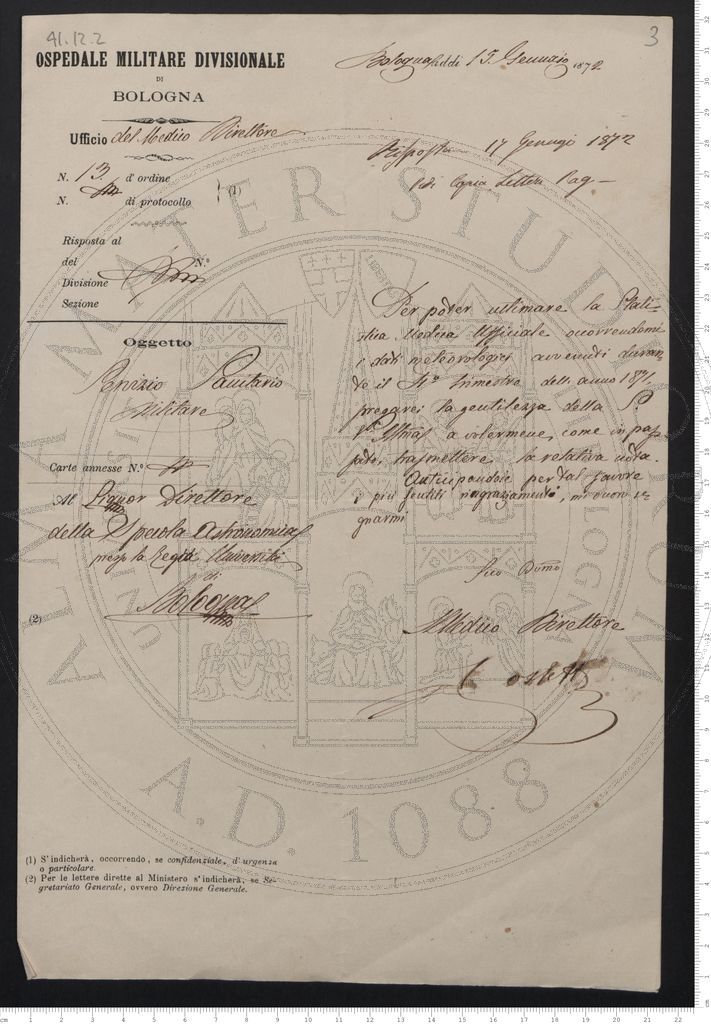 41.12.2
3
OSPEDALE MILITARE DIVISIONALE
DI
BOLOGNA
Bologna addì 15 Gennaio 1872
Ufficio del Medico Direttore
Risposta 17 Gennajo 1872
Copia Lettere Pag
N. 13 d'ordine
N. di protocollo
(1)
Risposta al
del N.º
Divisione
Sezione
Oggetto
Servizio Sanitario
Militare
Carte annesse N.º
Al Signor Direttore
della Specola Astronomica
presso la Regia Università
di
Bologna
(2)
Per poter ultimare la Stati-
stica Medica Ufficiale occorrendomi
i dati meteorologici avvenuti duran-
te il 4º trimestre dell'anno 1871,
pregarei la gentilezza della S.
V. Illma a volermene, come in pas-
sato, trasmettere la relativa nota.
Anticipandole per tal favore
i più sentiti ringraziamenti, mi onoro se-
gnarmi
Suo Dvmo
Il Medico Direttore
ALMA MATER STUDIORUM
A.D. 1088
(1) S'indicherà, occorrendo, se confidenziale, d'urgenza
o particolare.
(2) Per le lettere dirette al Ministero s'indicherà, se Se-
gretariato Generale, ovvero Direzione Generale.